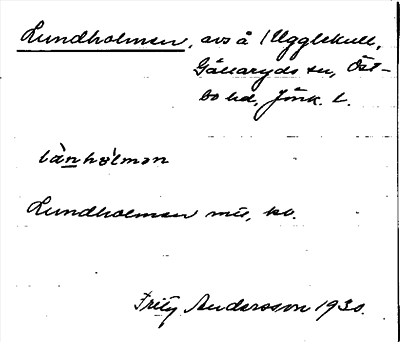 Lundholmen, avs å 1 Ugglekull,
Gällaryds sn, Öst-
bo hd, Jönk. l.
lùnhòlmən
Lundholmen mtl, ko.
Fritz Andersson 1930.